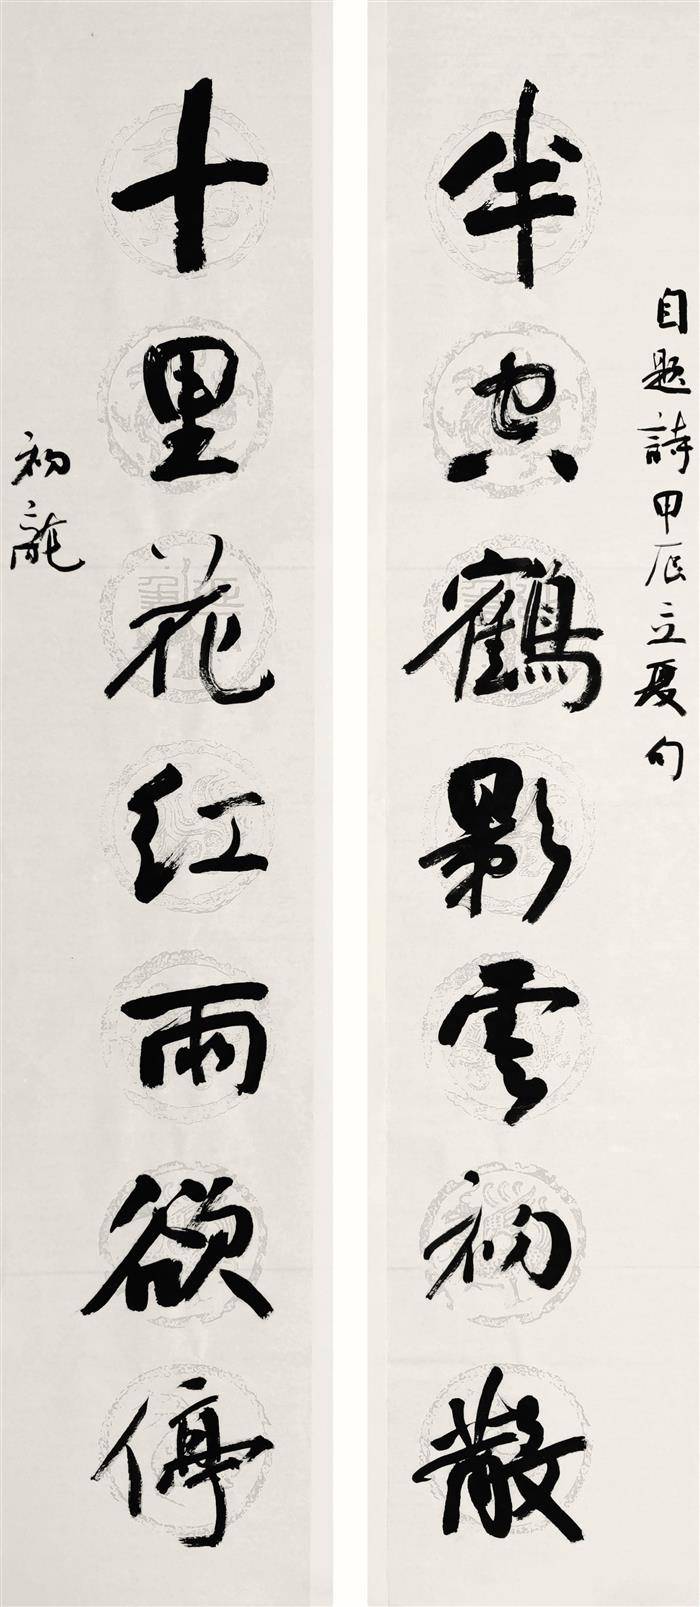 自题詩甲辰立夏句
半空鶴影雲初散
十里花红雨欲停
初龍